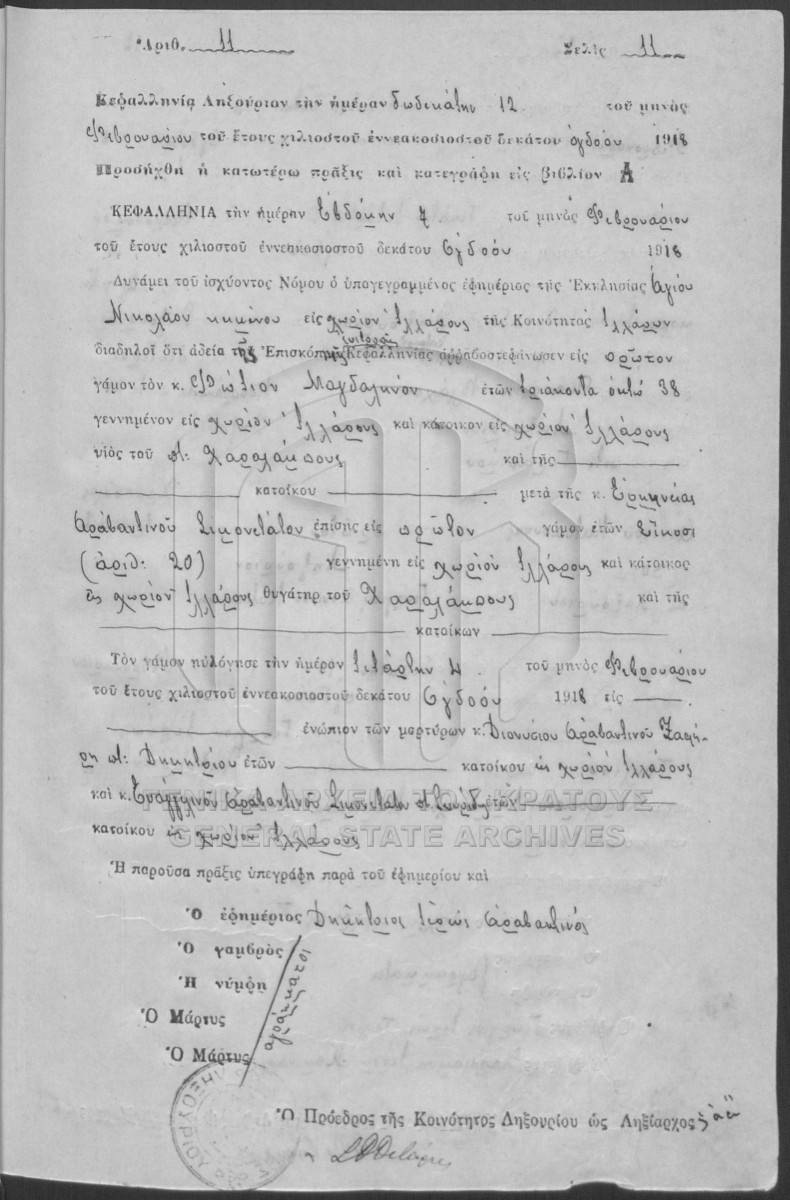 Ἀριθ. 11 Σελὶς 11
Κεφαλληνία Ληξούριον τὴν ἡμέραν δωδεκάτην 12 τοῦ μηνὸς
Φεβρουαρίου τοῦ ἔτους χιλιοστοῦ ἐννεακοσιοστοῦ δεκάτου ὀγδόου 1918
Προσήχθη ἡ κατωτέρω πρᾶξις καὶ κατεγράφη εἰς βιβλίον Α
ΚΕΦΑΛΛΗΝΙΑ τὴν ἡμέραν Ἑβδόμην 7 τοῦ μηνὸς Φεβρουαρίου
τοῦ ἔτους χιλιοστοῦ ἐννεακοσιοστοῦ δεκάτου Ογδόου 1918
Δυνάμει τοῦ ἰσχύοντος Νόμου ὁ ὑπογεγραμμένος ἐφημέριος τῆς Ἐκκλησίας Ἁγίου
Νικολάου εἰς χωρίον Ἰλλάρους τῆς Κοινότητος Ἰλλάρων
διαδηλοῖ ὅτι ἀδεία τῆς Ἐπισκοπῆς Κεφαλληνίας ἀρραβοστεφάνωσεν εἰς πρῶτον
γάμον τὸν κ. Φώτιον Μαγδαληνὸν ἐτῶν τριάκοντα ὀκτώ 38
γεννημένον εἰς χωρίον Ἰλλάρους καὶ κάτοικον εἰς χωρίον Ἰλλάρους
υἱὸς τοῦ π: Χαραλάμπους καὶ τῆς
κατοίκου μετὰ τῆς κ. Ἑρμηνείας
Ἀραβαντινοῦ Σιμονετάτου ἐπίσης εἰς πρῶτον γάμον ἐτῶν Εἴκοσι
(ἀριθ: 20) γεννημένη εἰς χωρίον Ἰλλάρους καὶ κάτοικος
εἰς χωρίον Ἰλλάρους θυγάτηρ τοῦ Χαραλάμπους καὶ τῆς
κατοίκων
Τὸν γάμον ηὐλόγησε τὴν ἡμέραν τετάρτην 4 τοῦ μηνὸς Φεβρουαρίου
τοῦ ἔτους χιλιοστοῦ ἐννεακοσιοστοῦ δεκάτου Ογδόου 1918 εἰς
ἐνώπιον τῶν μαρτύρων κ. Διονυσίου Ἀραβαντινοῦ Ζαφή-
ρη π: Δημητρίου ἐτῶν κατοίκου εἰς χωρίον Ἰλλάρους
καὶ κ. Εὐαγγελινοῦ Ἀραβαντινοῦ Σιμονετάτου π. Σπυρίδ. ἐτῶν
κατοίκου εἰς χωρίον Ἰλλάρους
ΓΕΝΙΚΑ ΑΡΧΕΙΑ ΤΟΥ ΚΡΑΤΟΥΣ
GENERAL STATE ARCHIVES
Ἡ παροῦσα πρᾶξις ὑπεγράφη παρὰ τοῦ ἐφημερίου καὶ
Ὁ ἐφημέριος Δημήτριος ἱερεὺς Ἀραβαντινός
Ὁ γαμβρὸς
Ἡ νύμφη
ἀγράμματοι
Ὁ Μάρτυς
Ὁ Μάρτυς
Ὁ Πρόεδρος τῆς Κοινότητος Ληξουρίου ὡς Ληξίαρχος